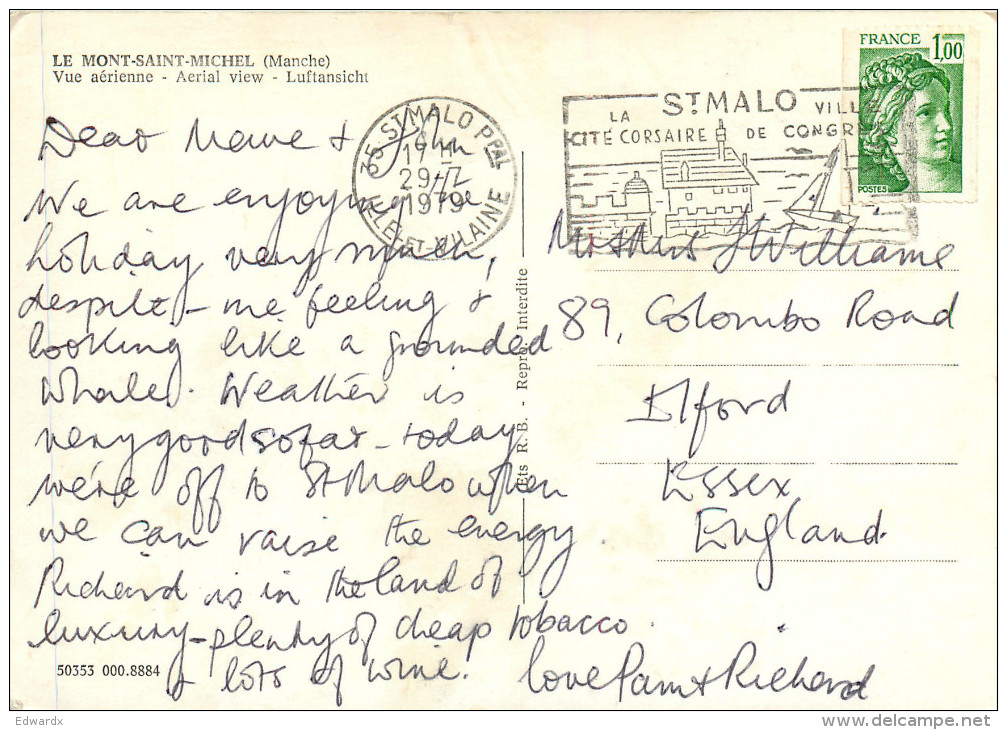 LE MONT-SAINT-MICHEL (Manche)
Vue aérienne - Aerial view - Luftansicht
Dear &
We are enjoying the
holiday very much,
despite me feeling &
looking like a grounded
whale. Weather is
very good so far - today
we're off to St Malo when
we can raise the energy.
Richard is in the land of
luxury - plenty of cheap tobacco
& lots of wine.
love Pam & Richard
50353 000.8884
Ets R. B. - Repro. Interdite
35 ST MALO Ppal
17 H
29-7
1979
ILLE-ET-VILAINE
LA ST MALO VILLE
CITÉ CORSAIRE DE CONGR
FRANCE 1,00
POSTES
Mr & Mrs J Williams
89, Colombo Road
Ilford
Essex
England.
Edwardx
www.delcampe.net